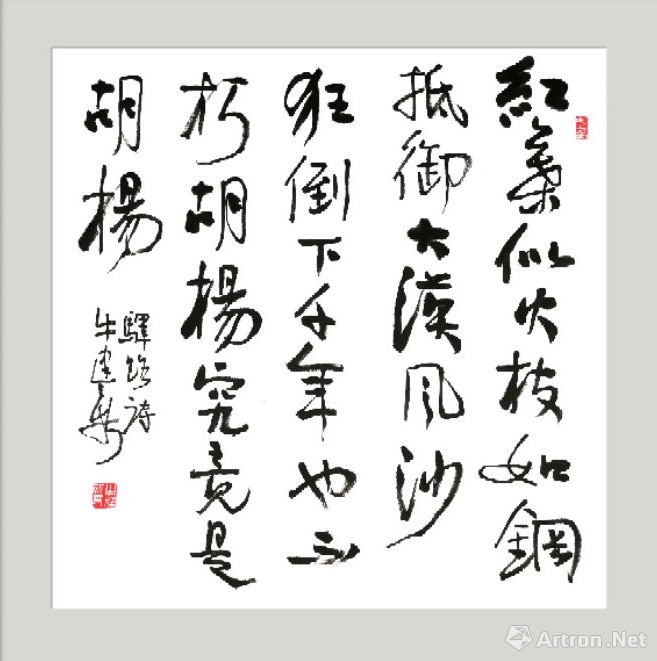 紅葉似火枝如鋼
抵御大漠风沙
狂倒下千年也不
朽胡楊究竟是
胡楊
驛路詩
牛建
Artron.Net